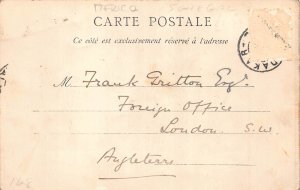 AFRICA SENEGAL
CARTE POSTALE
Ce côté est exclusivement réservé à l'adresse
DAKAR
M. Frank Gritton Esqr.
Foreign Office
London. S.W.
Angleterre